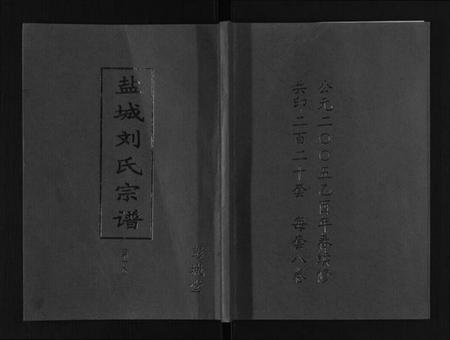 盐城刘氏宗谱
彭城堂
公元二〇〇五乙酉年春续修
共印二百二十套 每套八卷